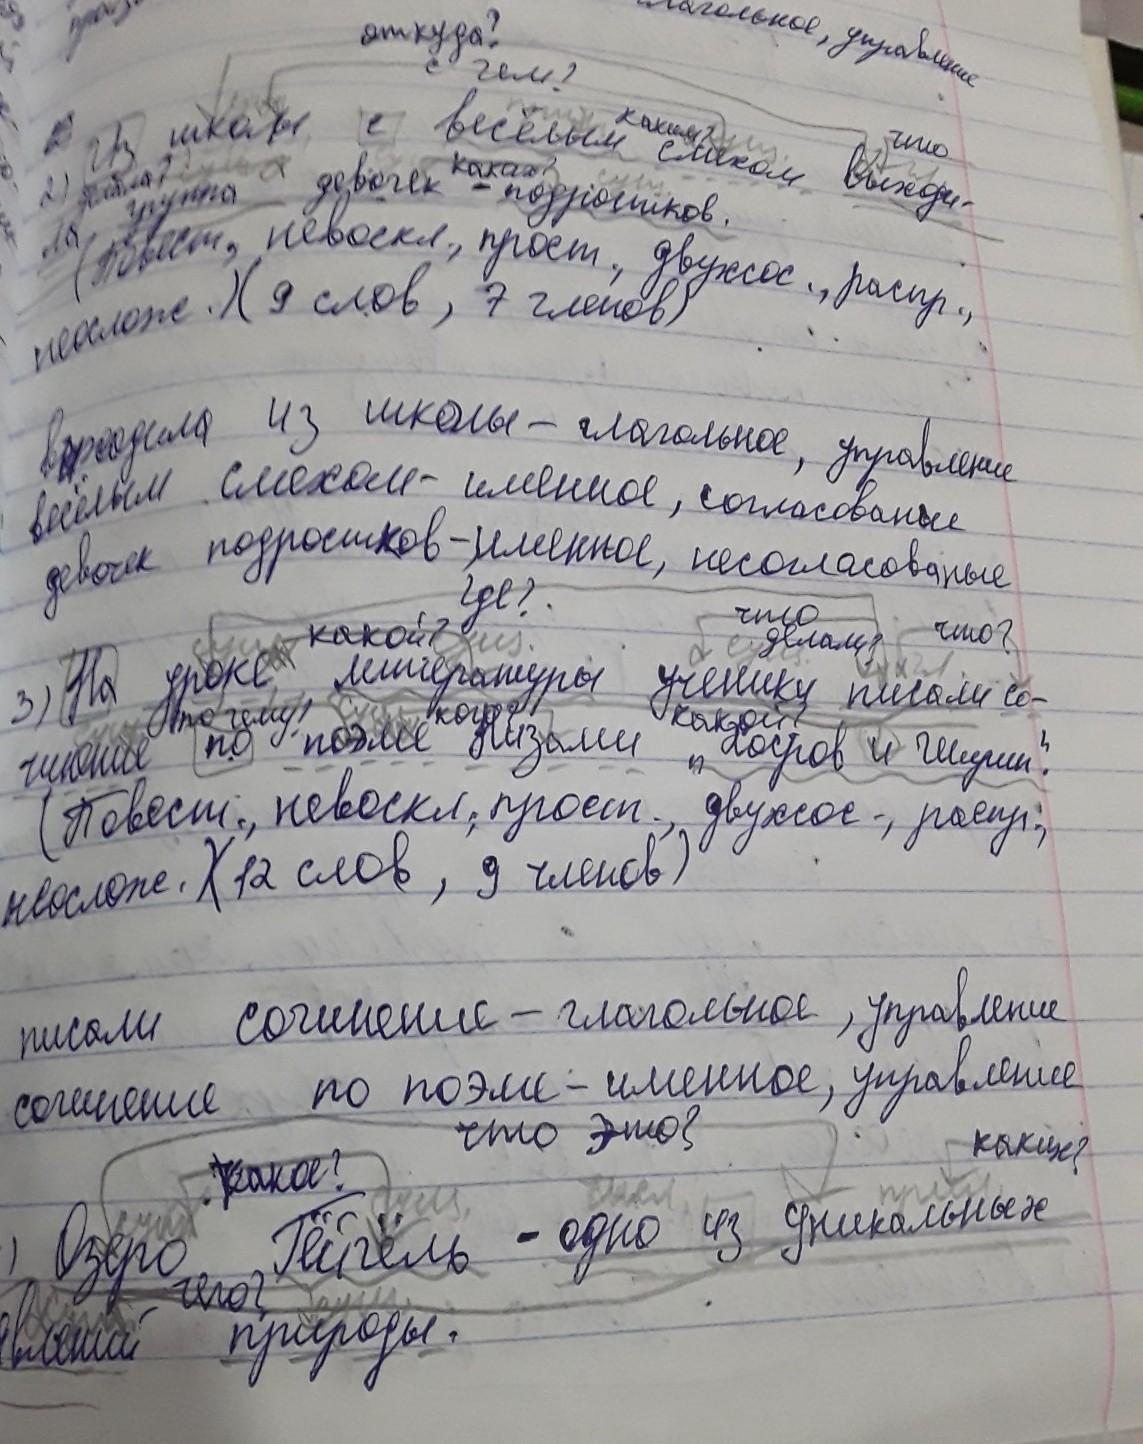 глагольное, управление
откуда?
с чем?
каким? что
2) Из школы с весёлым смехом выходи-
какая?
ла группа девочек - подростков.
(Повест., невоскл., прост., двухсос., распр.,
неослож.) (9 слов, 7 членов)
выходила из школы - глагольное, управление
весёлым смехом - именное, согласованые
девочек подростков - именное, несогласованые
где?
какой? что делали? что?
3) На уроке литературы ученики писали со-
почему? кого? какой?
чинение по поэме Низами „Хосров и Ширин".
(Повест., невоскл., прост., двухсос., распр.,
неослож.) (12 слов, 9 членов)
писали сочинение - глагольное, управление
сочинение по поэме - именное, управление
что это?
какое? каких?
) Озеро Гёйгёль - одно из уникальных
чего?
явлений природы.